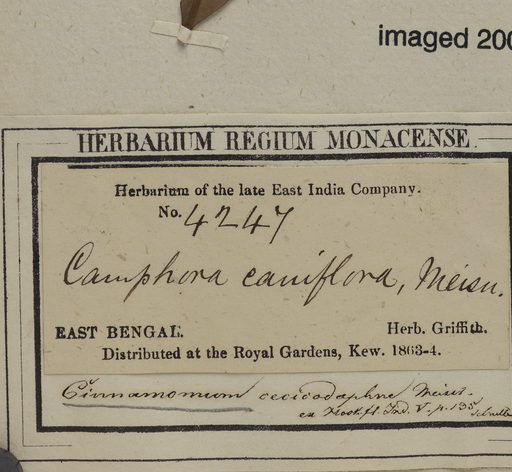 imaged 200
HERBARIUM REGIUM MONACENSE
Herbarium of the late East India Company.
No. 4247
Camphora caniflora, Meisn.
EAST BENGAL. Herb. Griffith.
Distributed at the Royal Gardens, Kew. 1863-4.
Cinnamomum cecicodaphne Meisn.
ex Hook. fl. Ind. V. p. 135